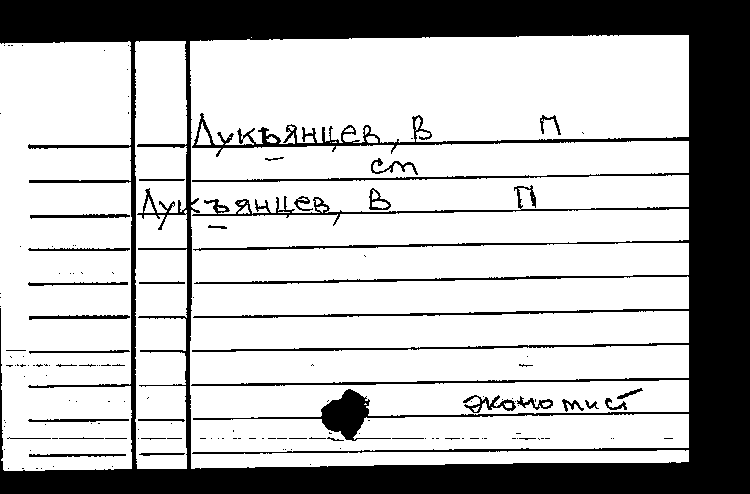 Лукьянцев, В П
см
Лукъянцев, В П
экономист